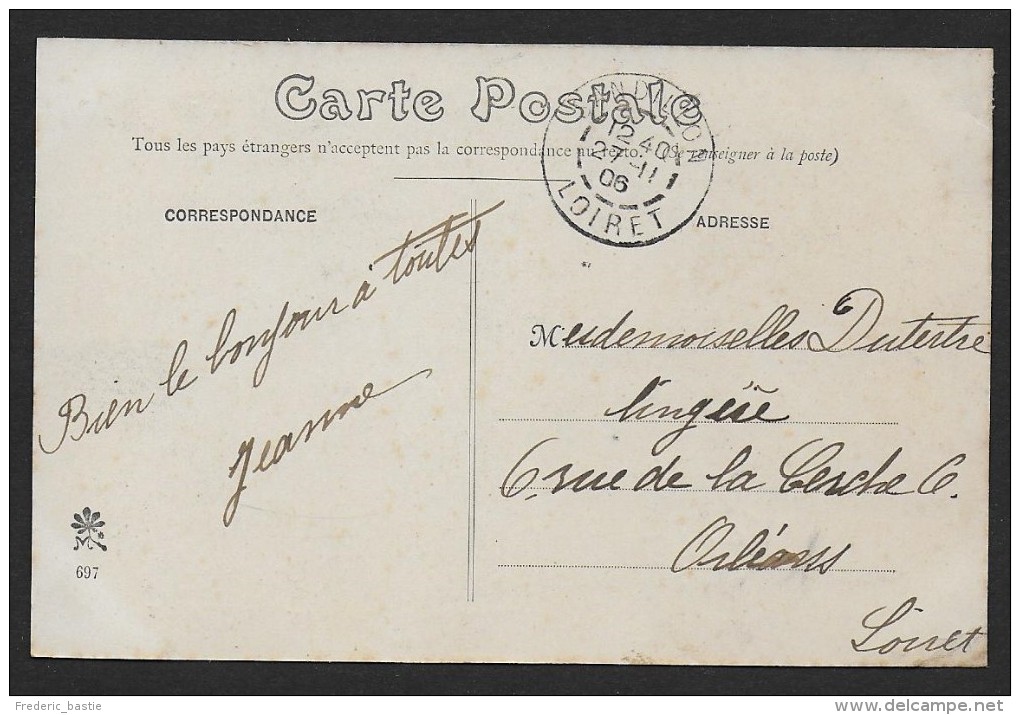 Carte Postale
Tous les pays étrangers n'acceptent pas la correspondance au recto. (Se renseigner à la poste)
12 40
27 -11
06
LOIRET
CORRESPONDANCE
ADRESSE
Bien le bonjour à toutes
Jeanne
Mesdemoiselles Dutertre
lingère
6, rue de la Cerche 6.
Orléans
Loiret
M
697
Frederic_bastie
www.delcampe.net